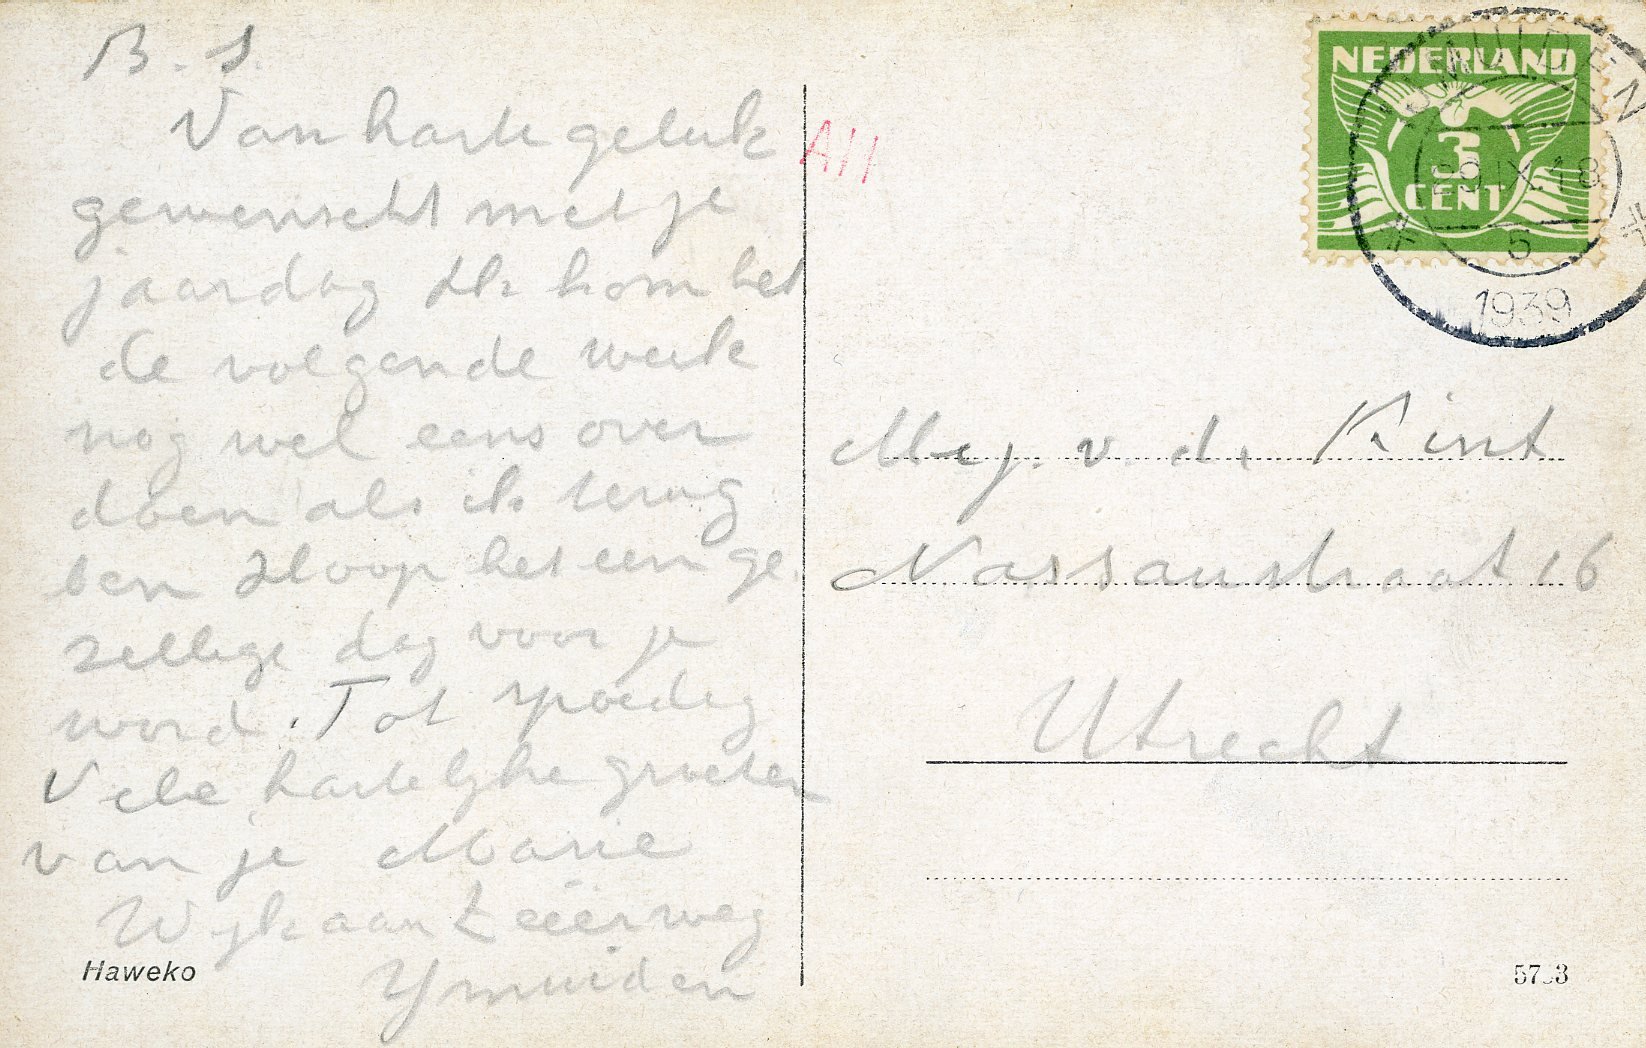 B. S.
Van harte geluk
gewenscht met je
jaardag Ik kom het
de volgende week
nog wel eens over
doen als ik terug
ben Hoop het een ge.
zellige dag voor je
word. Tot spoedig
Vele hartelijke groeten
van je Marie
Wijk aan Zeeërweg
Ymuiden
Haweko
A11
NEDERLAND
3
CENT
IJMUIDEN
29.IX.18
5
1939
Mej. v. d. Kint
Nassaustraat 16
Utrecht